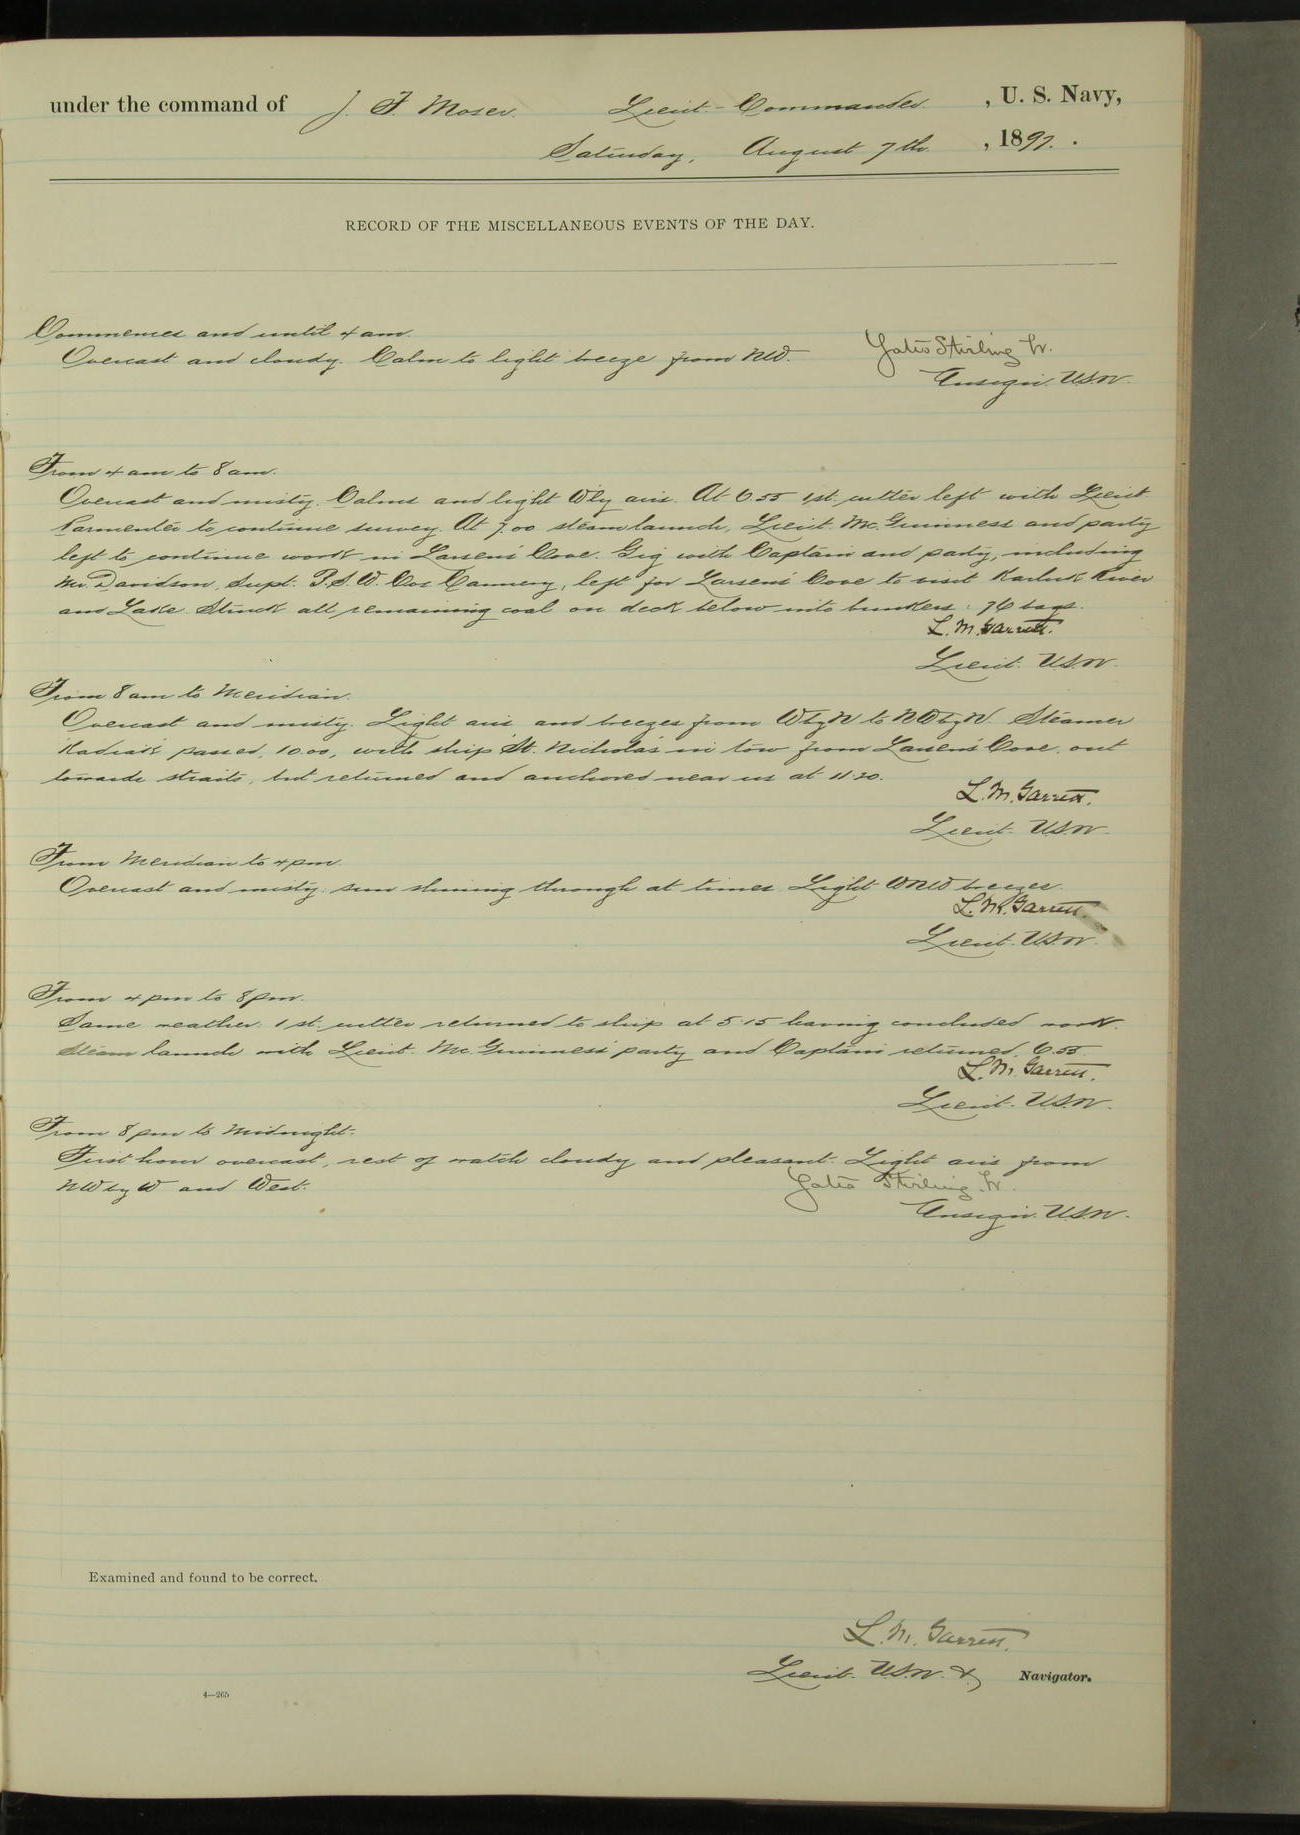 under the command of J. F. Moser. Lieut-Commander , U. S. Navy,
Saturday, August 7th. , 1897. .
RECORD OF THE MISCELLANEOUS EVENTS OF THE DAY.
Commences and until 4 am.
Overcast and cloudy. Calm to light breeze from NW.
Yates Stirling Jr.
Ensign. U.S.N.
From 4 am to 8 am.
Overcast and misty. Calms and light Wly airs. At 6.55 1st. cutter left with Lieut
Parmenter to continue survey. At 7.00 steam launch, Lieut. McGuinness and party
left to continue work in Larsen's Cove. Gig with Captain and party, including
Mr. Davidson, Supt. P.S.W. Cos Cannery, left for Larsen's Cove to visit Karluk River
and Lake. Struck all remaining coal on deck below into bunkers: 76 bags.
L. M. Garrett.
Lieut. U.S.N.
From 8 am to Meridian.
Overcast and misty. Light airs and breezes from WbyN to NWbyN. Steamer
Kadiak passed, 10.00, with ship St. Nicholas in tow from Larsen's Cove, out
towards straits, but returned and anchored near us at 11.20.
L. M. Garrett.
Lieut. U.S.N.
From Meridian to 4 pm.
Overcast and misty: sun shining through at times. Light WNW breezes.
L. M. Garrett.
Lieut. U.S.N.
From 4 pm to 8 pm.
Same weather. 1st. cutter returned to ship at 5.15 having concluded work.
Steam launch with Lieut. McGuinness' party and Captain returned, 6.55.
L. M. Garrett.
Lieut. U.S.N.
From 8 pm to Midnight.
First hour overcast, rest of watch cloudy and pleasant. Light airs from
NWbyW and West.
Yates Stirling Jr.
Ensign. U.S.N.
Examined and found to be correct.
L. M. Garrett.
Lieut. U.S.N. & Navigator.
4—265